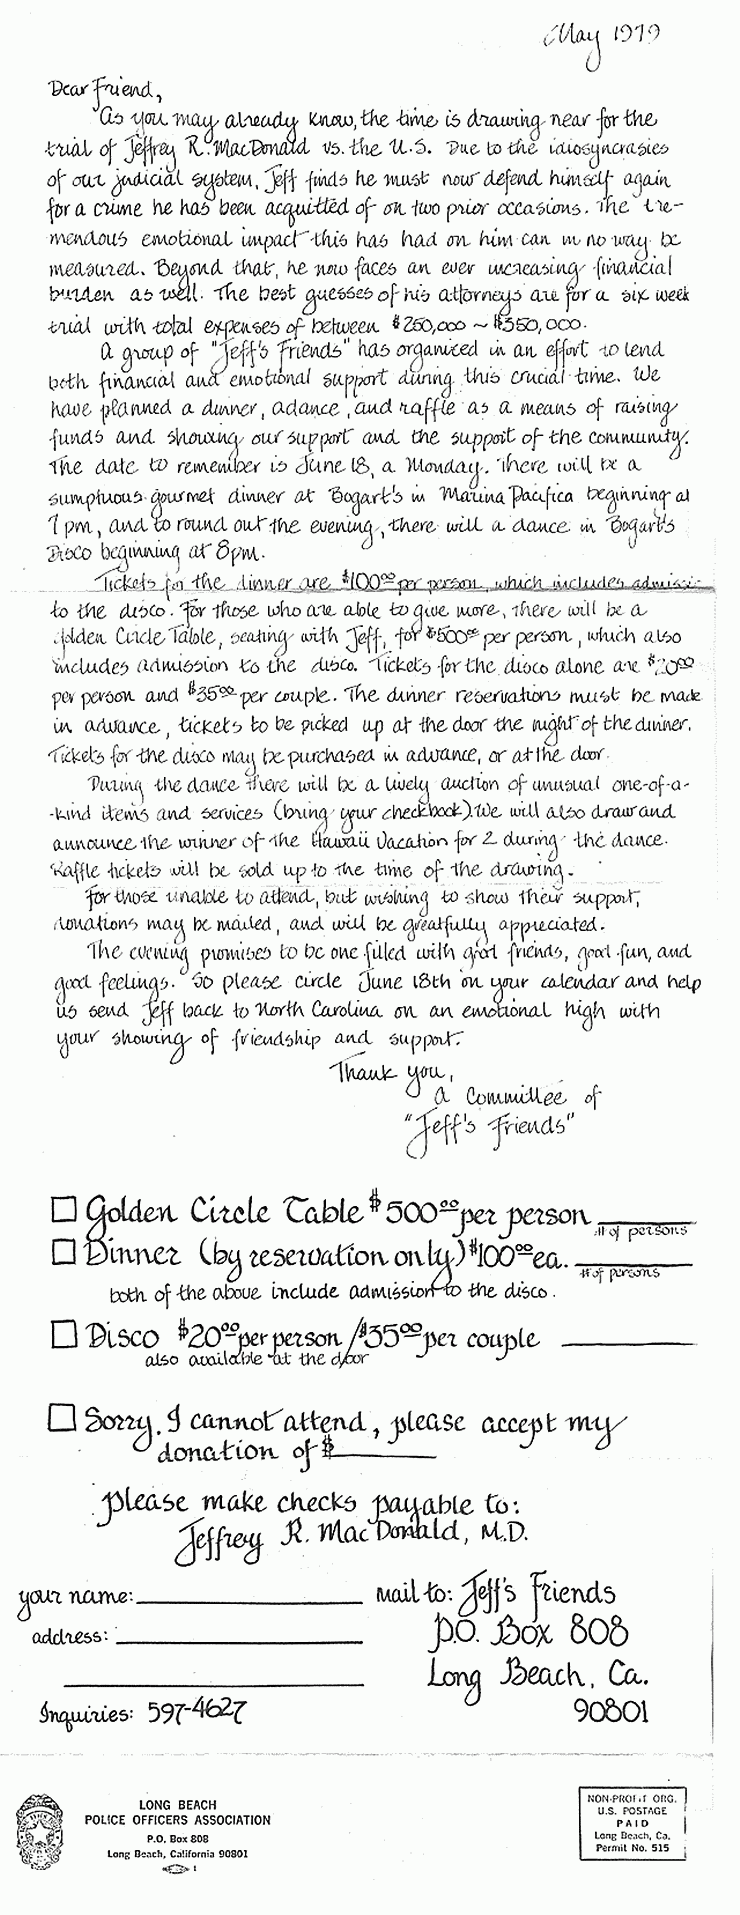 May 1979
Dear Friend,
As you may already know, the time is drawing near for the
trial of Jeffrey R. MacDonald vs. the U.S. Due to the idiosyncrasies
of our judicial system, Jeff finds he must now defend himself again
for a crime he has been acquitted of on two prior occasions. The tre-
mendous emotional impact this has had on him can in no way be
measured. Beyond that, he now faces an ever increasing financial
burden as well. The best guesses of his attorneys are for a six week
trial with total expenses of between $250,000 ~ $350,000.
A group of "Jeff's Friends" has organized in an effort to lend
both financial and emotional support during this crucial time. We
have planned a dinner, a dance, and raffle as a means of raising
funds and showing our support and the support of the community.
The date to remember is June 18, a Monday. There will be a
sumptuous gourmet dinner at Bogart's in Marina Pacifica beginning at
7 pm, and to round out the evening, there will a dance in Bogart's
Disco beginning at 8pm.
Tickets for the dinner are $100.00 per person, which includes admissi-
to the disco. For those who are able to give more, there will be a
Golden Circle Table, seating with Jeff, for $500.00 per person, which also
includes admission to the disco. Tickets for the disco alone are $20.00
per person and $35.00 per couple. The dinner reservations must be made
in advance, tickets to be picked up at the door the night of the dinner.
Tickets for the disco may be purchased in advance, or at the door.
During the dance there will be a lively auction of unusual one-of-a-
-kind items and services (bring your checkbook). We will also draw and
announce the winner of the Hawaii Vacation for 2 during the dance.
Raffle tickets will be sold up to the time of the drawing.
For those unable to attend, but wishing to show their support,
donations may be mailed, and will be greatfully appreciated.
The evening promises to be one filled with good friends, good fun, and
good feelings. So please circle June 18th on your calendar and help
us send Jeff back to North Carolina on an emotional high with
your showing of friendship and support.
Thank you,
A Committee of
"Jeff's Friends"
Golden Circle Table $500.00 per person
# of persons
Dinner (by reservation only) $100.00 ea.
# of persons
both of the above include admission to the disco.
Disco $20.00 per person / $35.00 per couple
also available at the door
Sorry, I cannot attend, please accept my
donation of $
please make checks payable to:
Jeffrey R. MacDonald, M.D.
your name: mail to: Jeff's Friends
address: P.O. Box 808
Long Beach, Ca.
Inquiries: 597-4627 90801
LONG BEACH
POLICE OFFICERS ASSOCIATION
P.O. Box 808
Long Beach, California 90801
NON-PROFIT ORG.
U.S. POSTAGE
PAID
Long Beach, Ca.
Permit No. 515